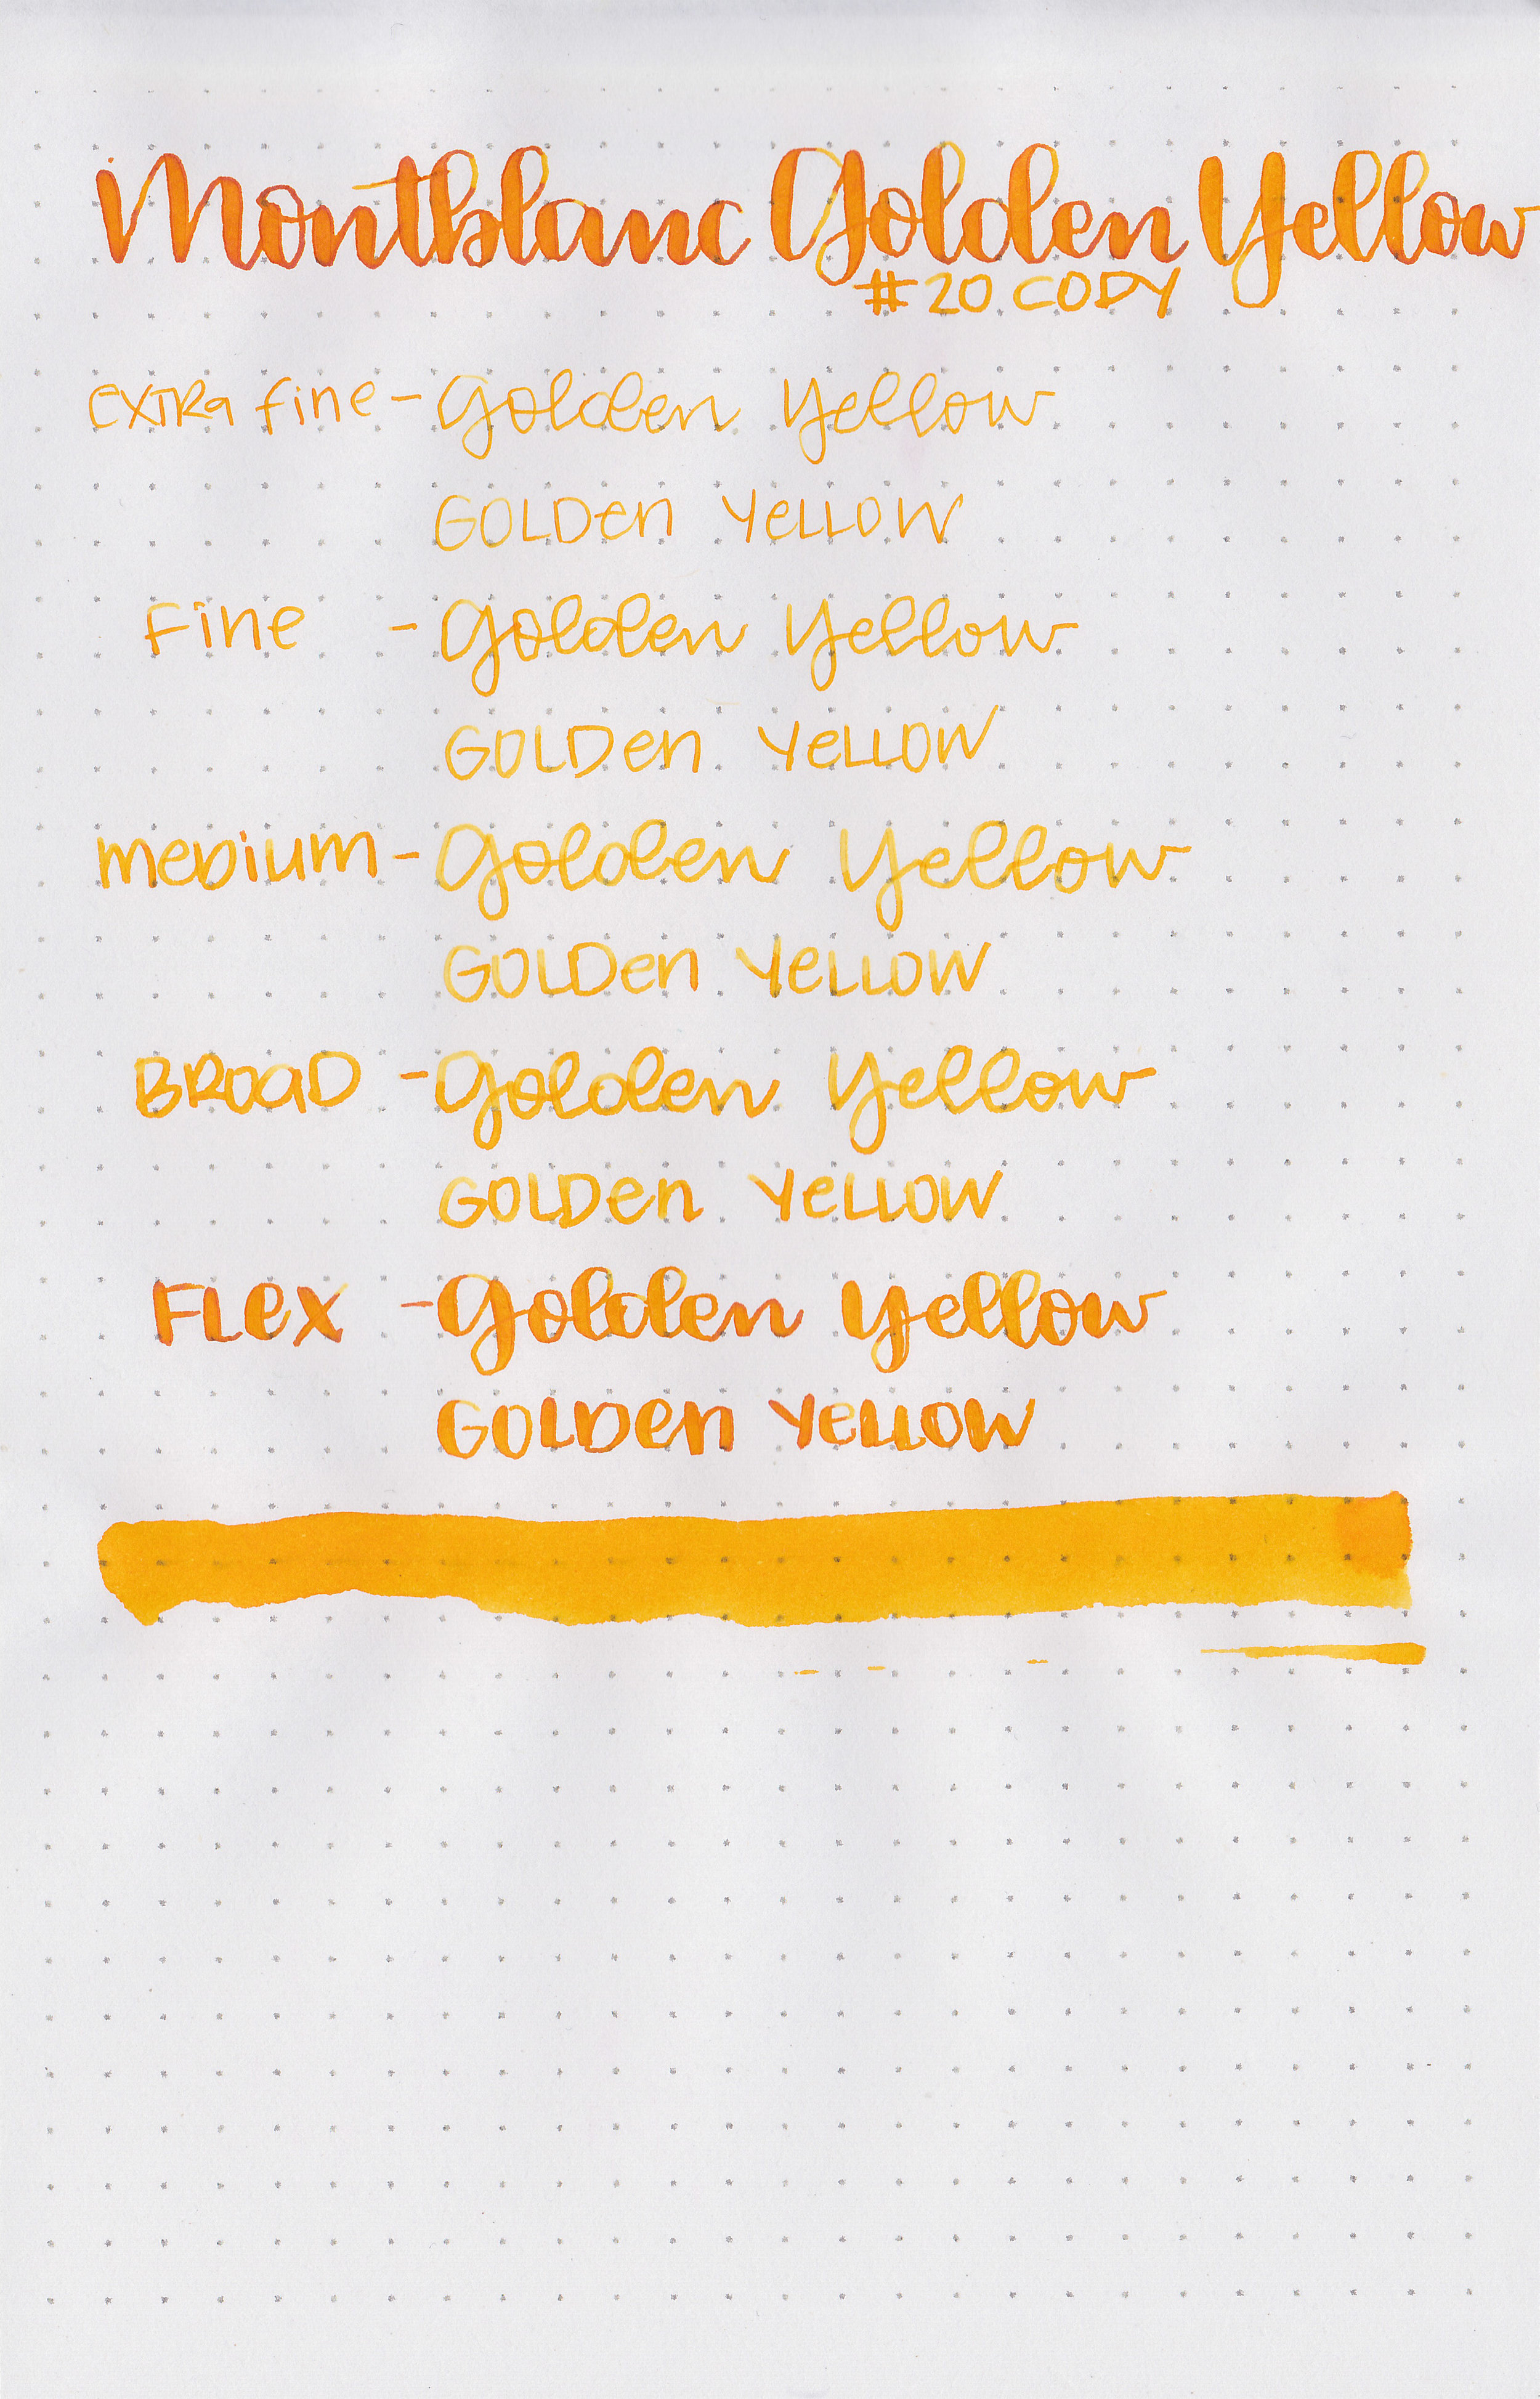 Montblanc Golden Yellow
#20 CODY
Extra fine - Golden Yellow
GOLDen YeLLOW
Fine - Golden Yellow
GOLDen YeLLOW
meDium - Golden Yellow
GOLDen YeLLOW
BROaD - Golden Yellow
GOLDen YeLLOW
FLex - Golden Yellow
GOLDen YeLLOW